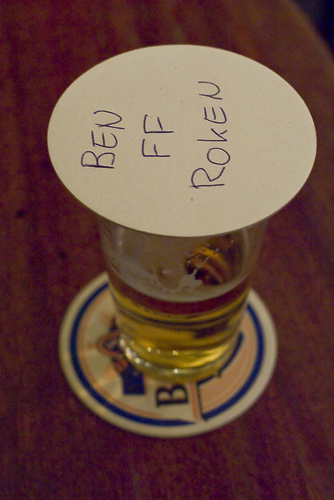 BEN
FF
ROKEN
B